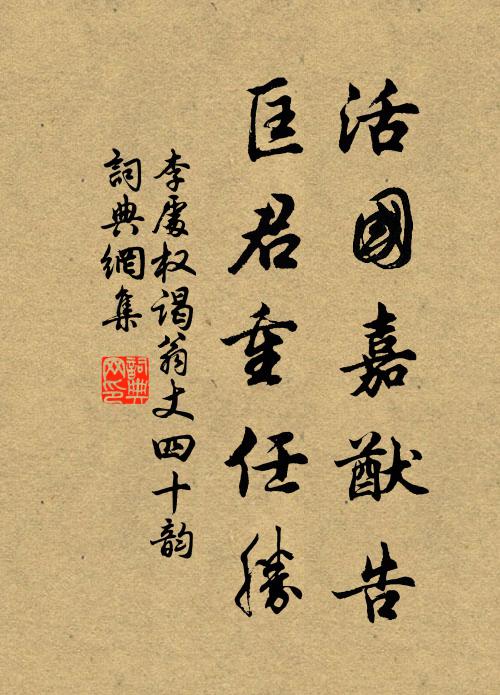 活國嘉猷告
匡君重任勝
李處权謁翁丈四十韵
詞典網集
詞典网印